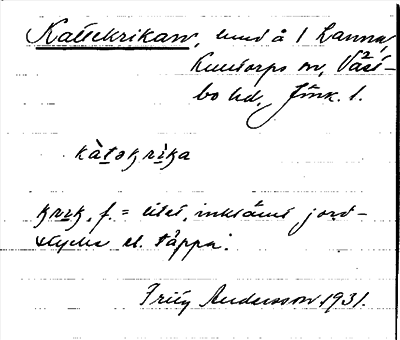 Kattekrikan, lund å 1 Lanna,
Kulltorps sn, Väst-
bo hd, Jönk. l.
kàtəkrika
krik, f. = litet, inklämt jord-
stycke el. täppa.
Frity Andersson 1931.